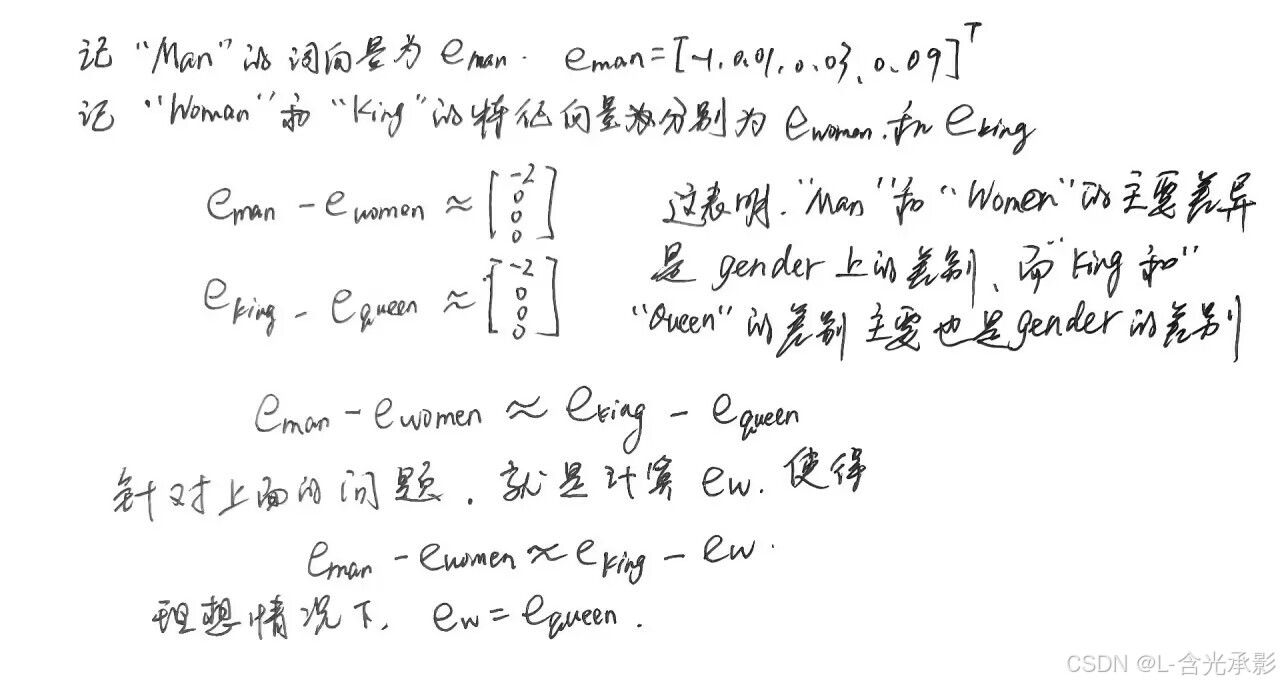 记 "Man" 的词向量为 e_man. e_man = [-1, 0.01, 0.03, 0.09]^T
记 "Woman" 和 "King" 的特征向量分别为 e_women. 和 e_king
e_man - e_women ≈ [-2 0 0 0] 这表明. "Man" 和 "Women" 的主要差异
是 gender 上的差别、而 "King 和"
e_king - e_queen ≈ [-2 0 0 0] "Queen" 的差别主要也是 gender 的差别
e_man - e_women ≈ e_king - e_queen
针对上面的问题. 就是计算 e_w. 使得
e_man - e_women ≈ e_king - e_w.
理想情况下. e_w = e_queen.
CSDN @L-含光承影